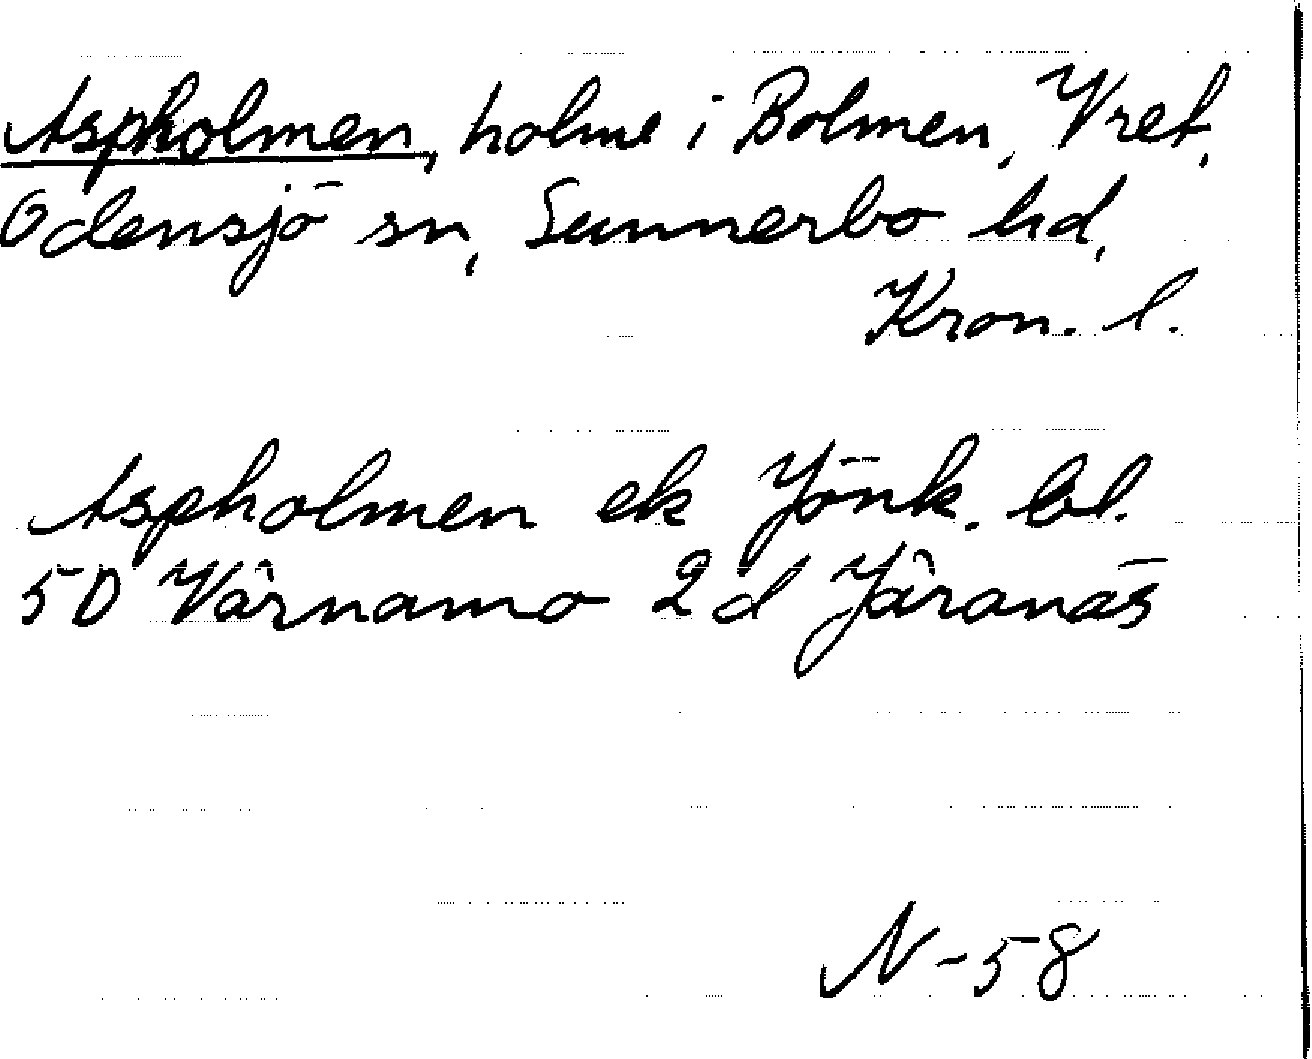 Aspholmen, holme i Bolmen, Vret,
Odensjö sn, Sunnerbo hd,
Kron. l.
Aspholmen ek Jönk. bl.
5D Värnamo 2d Järanäs
N-58